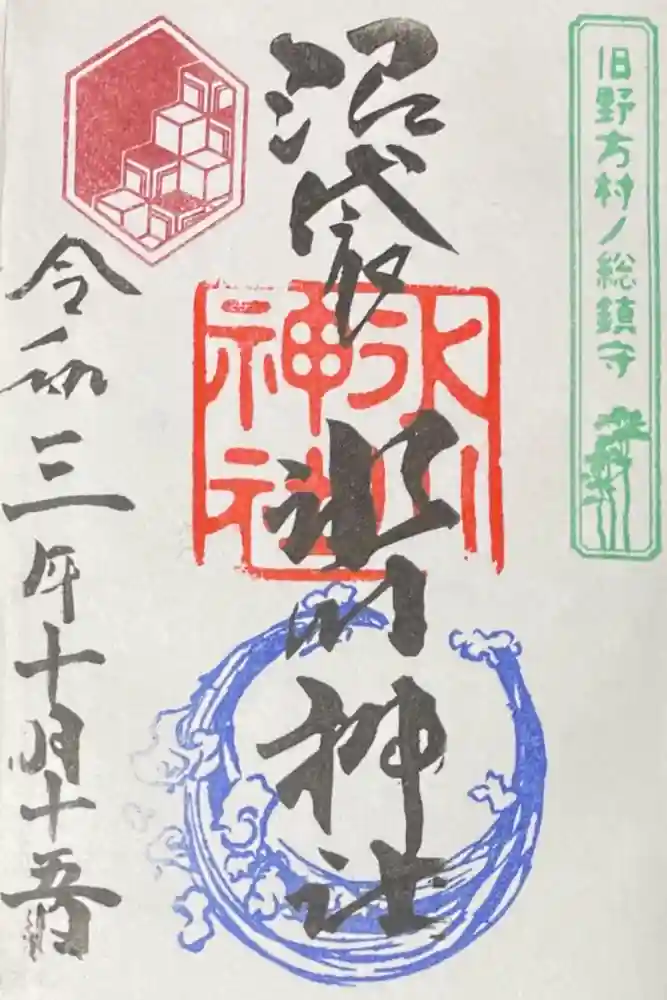 旧野方村ノ総鎮守
沼袋氷川神社
氷川
神社
令和三年十月十五日